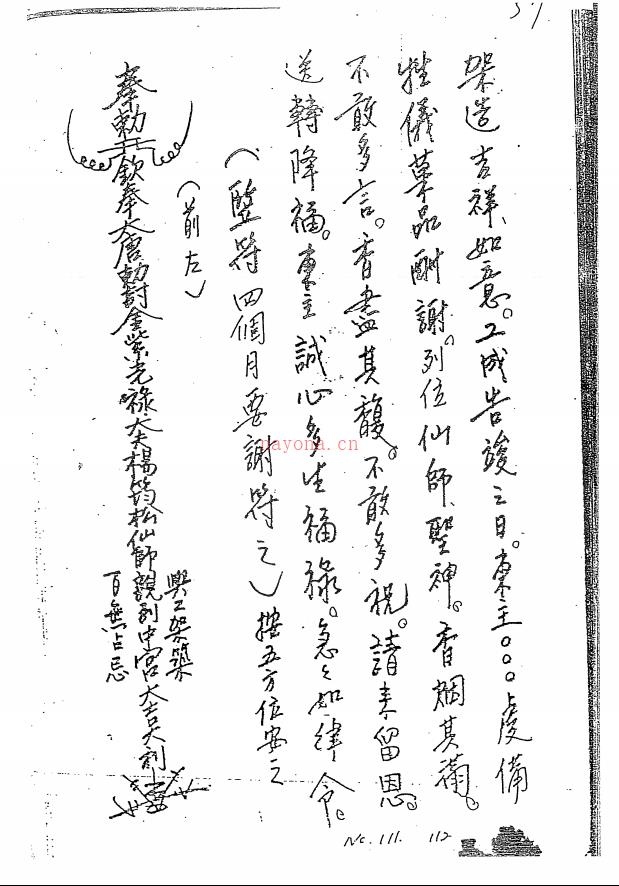 57
架造吉祥、如意。工成告竣之日。東主○○○虔備
牲儀菓品酬謝。列位仙師、聖神。香烟其滿。
不敢多言。香盡其馥。不敢多祝。請來留恩。
送轉降福。東主誠心多生福祿。急々如律令。
(豎符四個月要謝符之)按五方位安之
(前左)
奉勅 欽奉大唐勅封金紫光祿大夫楊筠松仙師親到中宮大吉大利
興工架築
百無占忌
No. 111. 112
nayona.cn